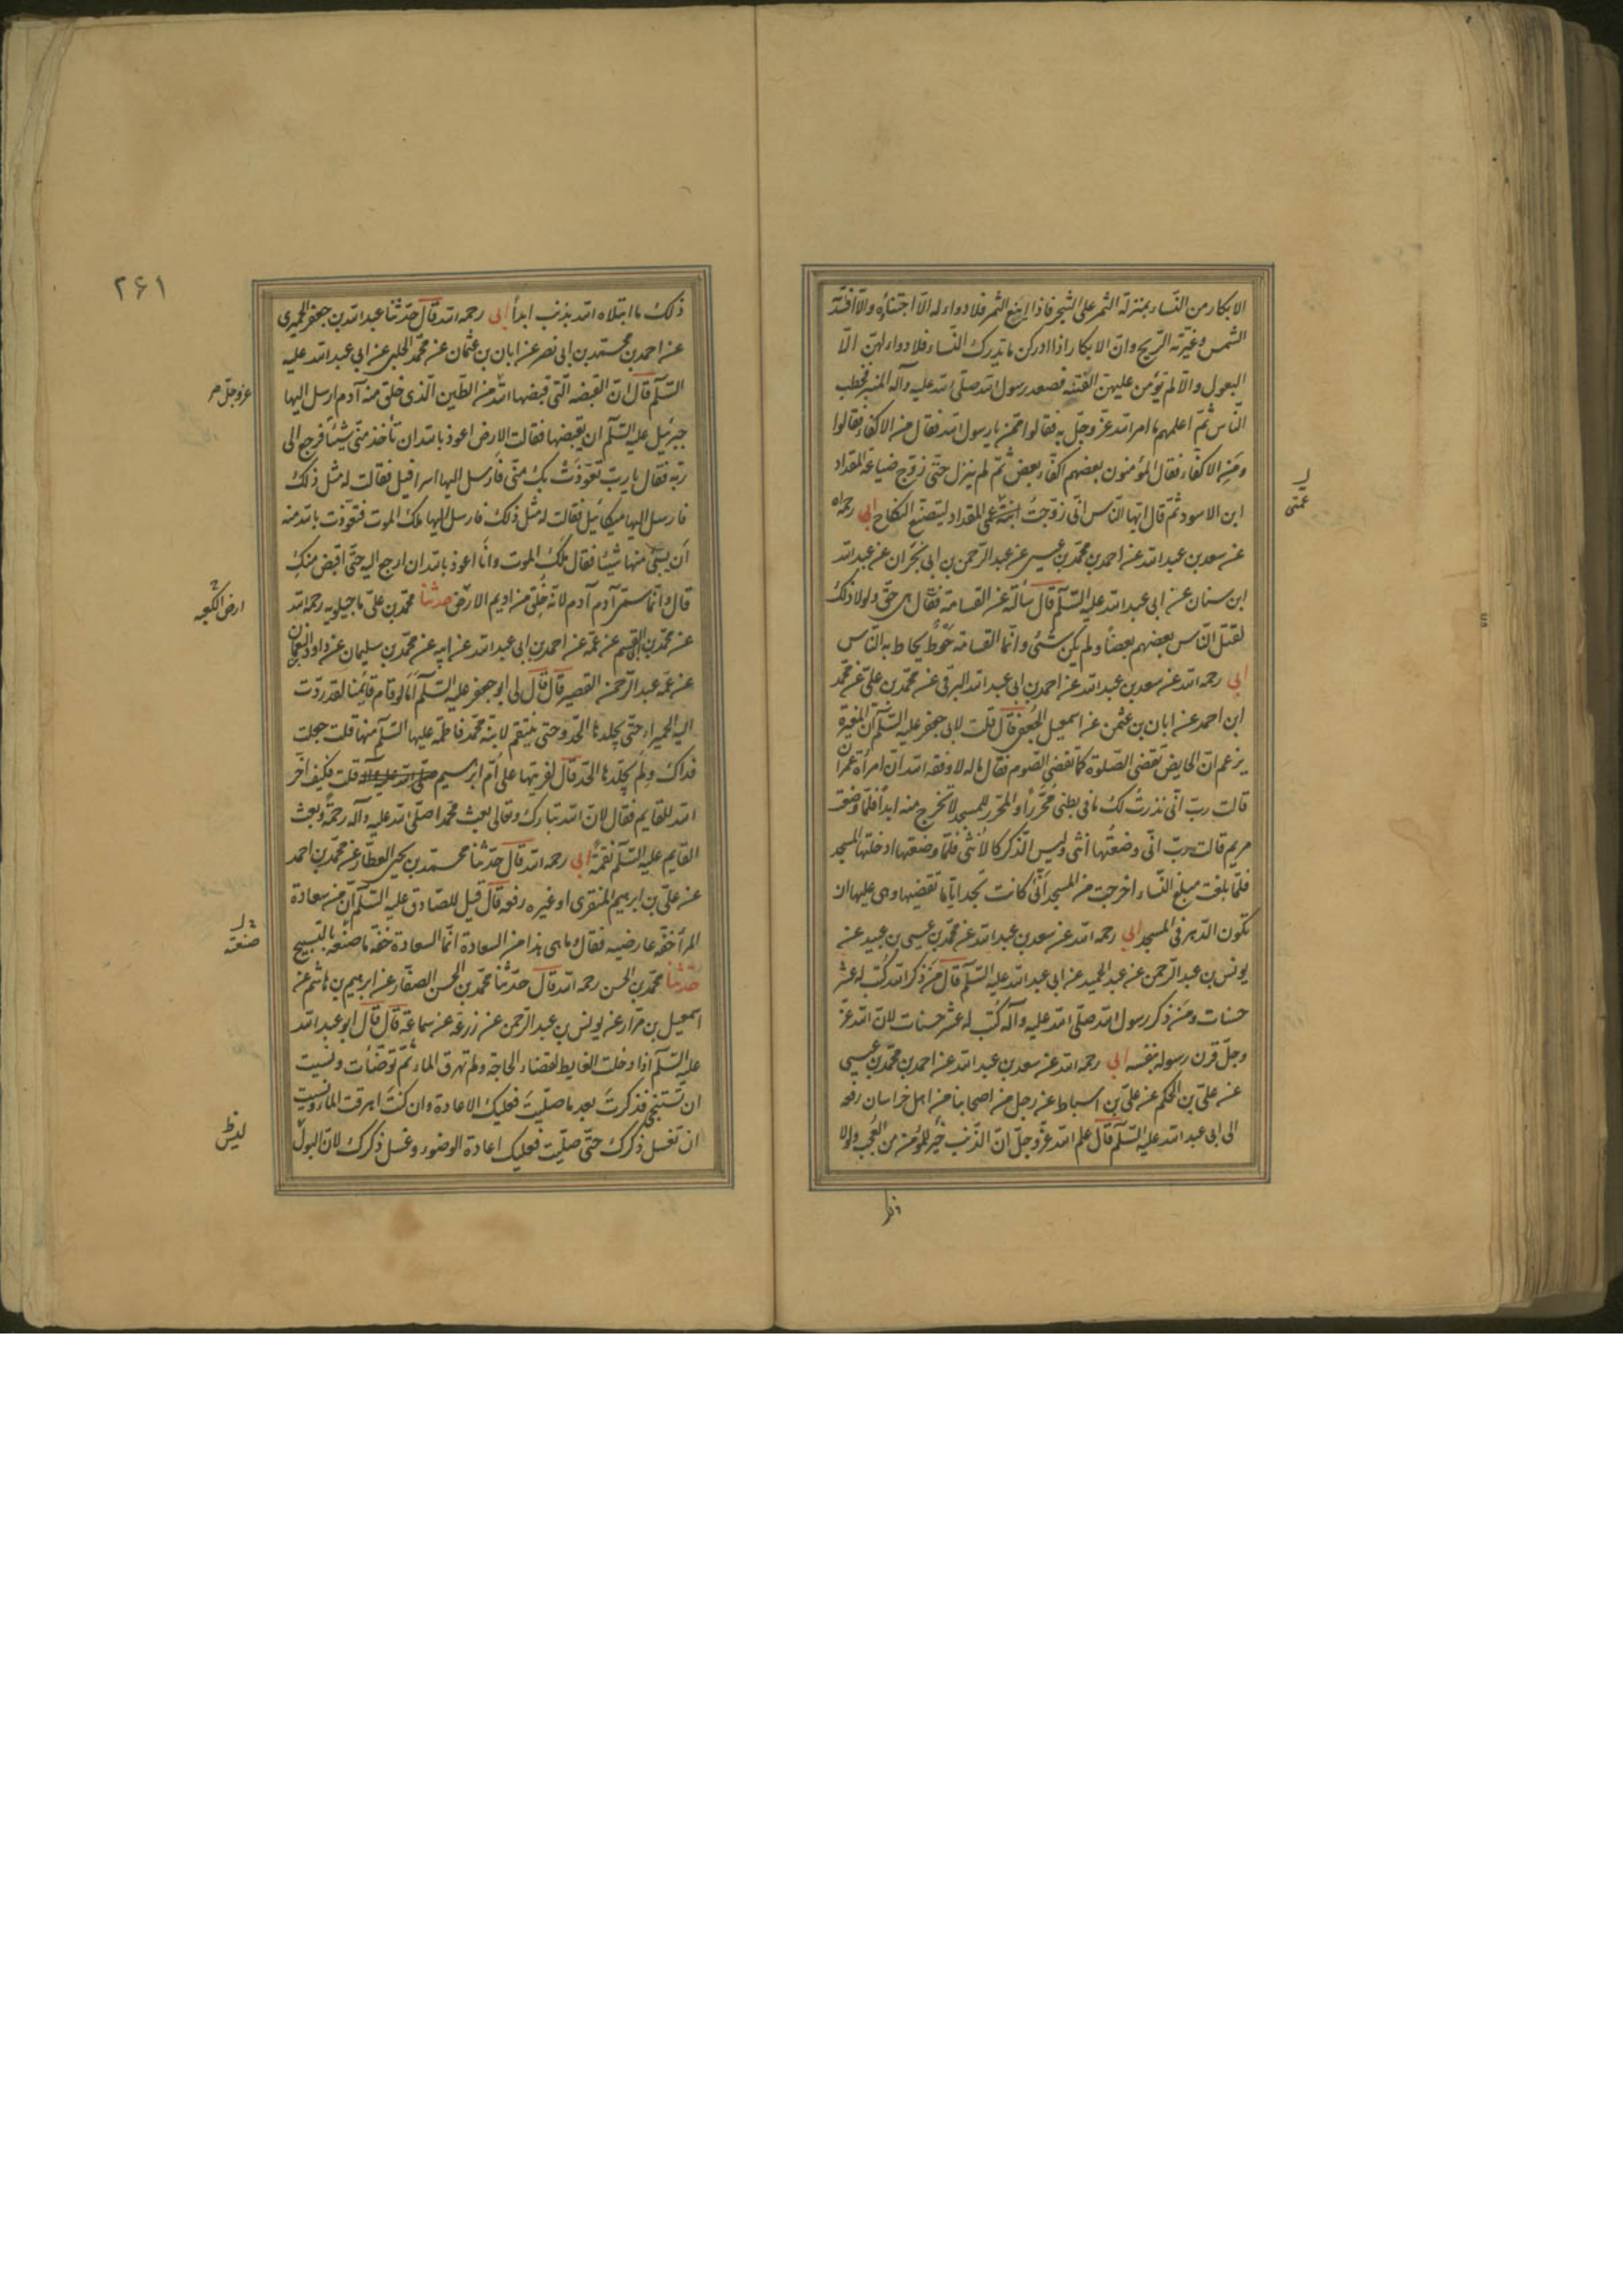 الابكار من النّساء بمنزلة الثمر على الشجر فاذا اينع الثمر فلا دواء له الّا اجتناؤه والّا افسدته
الشمس وغيّرته الرّيح وانّ الابكار اذا ادركن ما تدرك النّساء فلا دواء لهنّ الّا
البعول والّا لم يؤمن عليهنّ الفتنة فصعد رسول الله صلى الله عليه وآله المنبر فخطب
النّاس ثمّ اعلمهم ما امر الله عزّ وجلّ به فقالوا ممّن يا رسول الله فقال من الاكفاء فقالوا
ومن الاكفاء فقال المؤمنون بعضهم اكفاء بعض ثمّ لم ينزل حتّى زوّج ضباعة المقداد
ابن الاسود ثم قال ايّها النّاس انّى زوّجت ابنة عمّى المقداد ليتّضع النكاح ابى رحمه الله
عن سعد بن عبد الله عن احمد بن محمّد بن عيسى عن عبد الرّحمن بن ابى نجران عن عبد الله
ابن سنان عن ابى عبد الله عليه السّلم قال سألته عن القسامة فقال هى حقّ ولولا ذلك
لقتل النّاس بعضهم بعضًا ولم يكن شئ وانّما القسامة حوط يحاط به النّاس
ابى رحمه الله عن سعد بن عبد الله عن احمد بن ابى عبد الله البرقى عن محمّد بن علىّ عن محمّد
ابن احمد عن ابان بن عثمن عن اسمعيل الجعفى قال قلت لابى جعفر عليه السّلم انّ المغيرة
يزعم انّ الحايض تقضى الصّلوة كما تقضى الصّوم فقال ما له لا وفقه الله انّ امرأة عمران
قالت ربّ انّى نذرت لك ما فى بطنى محرّرًا والمحرّر للمسجد لا يخرج منه ابدًا فلمّا وضعت
مريم قالت ربّ انّى وضعتها انثى وليس الذّكر كالانثى فلمّا وضعتها ادخلتها المسجد
فلمّا بلغت مبلغ النّساء اخرجت من المسجد انّى كانت تجد ايّاما تقضيها وهى عليها ان
تكون الدّهر فى المسجد ابى رحمه الله عن سعد بن عبد الله عن محمّد بن عيسى بن عبيد عن
يونس بن عبد الرّحمن عن عبد الحميد عن ابى عبد الله عليه السّلم قال من ذكر الله كتب له عشر
حسنات ومن ذكر رسول الله صلّى الله عليه وآله كتب له عشر حسنات لانّ الله عزّ
وجلّ قرن رسوله بنفسه ابى رحمه الله عن سعد بن عبد الله عن احمد بن محمّد بن عيسى
عن علىّ بن الحكم عن علىّ بن اسباط عن رجل من اصحابنا من اهل خراسان رفعه
الى ابى عبد الله عليه السّلم قال علم الله عزّ وجلّ انّ الذّنب خير للمؤمن من العجب ولولا
عمّتى
٢۶١
ذلك ما ابتلاه الله بذنب ابدًا ابى رحمه الله قال حدّثنا عبد الله بن جعفر الحميرى
عن احمد بن محمّد بن ابى نصر عن ابان بن عثمان عن محمّد الحلبى عن ابى عبد الله عليه
السّلم قال انّ القبضة الّتى قبضها الله من الطّين الّذى خلق منه آدم ارسل اليها
جبرئيل عليه السّلم ان يقبضها فقالت الارض اعوذ بالله ان تأخذ منّى شيئًا فرجع الى
ربّه فقال يا ربّ تعوّذت بك منّى فارسل اليها اسرافيل فقالت له مثل ذلك
فارسل اليها ميكائيل فقالت له مثل ذلك فارسل اليها ملك الموت فتعوّذت بالله منه
ان يسبى منها شيئًا فقال ملك الموت وانا اعوذ بالله ان ارجع اليه حتّى اقبض منك
قال وانّما سمّى آدم آدم لانّه خلق من اديم الارض حدثنا محمّد بن علىّ ماجيلويه رحمه الله
عن محمّد بن ابى القسم عن عمّه عن احمد بن ابى عبد الله عن ابيه عن محمّد بن سليمان عن داود النعمان
عن عمّه عبد الرّحمن القصير قال قال لى ابو جعفر عليه السّلم اما لو قام قائمنا لقد ردّت
اليه الحميراء حتّى يجلدها الحدّ وحتى ينتقم لابنة محمّد فاطمة عليها السّلم منها قلت جعلت
فداك ولم يجلدها الحدّ قال لفريتها على امّ ابرهيم قلت فكيف اخّر
الله للقايم فقال لانّ الله تبارك وتعالى بعث محمدا صلّى الله عليه وآله رحمة وبعث
القايم عليه السّلم نقمة ابى رحمه الله قال حدّثنا محمّد بن يحيى العطّار عن محمّد بن احمد
عن علىّ بن ابرهيم المنقرى او غيره رفعه قال قيل للصّادق عليه السّلم انّ من سعادة
المرأ خفّة عارضيه فقال وما هى هذا من السعادة انّما السعادة خفّة ماضغيه بالتسبيح
حدثنا محمّد بن الحسن رحمه الله قال حدّثنا محمّد بن الحسن الصفّار عن ابرهيم بن هاشم عن
اسمعيل بن مرّار عن يونس بن عبد الرّحمن عن زرعة عن سماعة قال قال ابو عبد الله
عليه السّلم اذا دخلت الغايط لقضاء الحاجة ولم تهرق الماء ثمّ توضّأت ونسيت
ان تستنجى فذكرت بعد ما صلّيت فعليك الاعادة وان كنت اهرقت الماء ونسيت
ان تغسل ذكرك حتّى صلّيت فعليك اعادة الوضوء وغسل ذكرك لانّ البول
عزّ وجلّ
ارض الكعبه
ليس